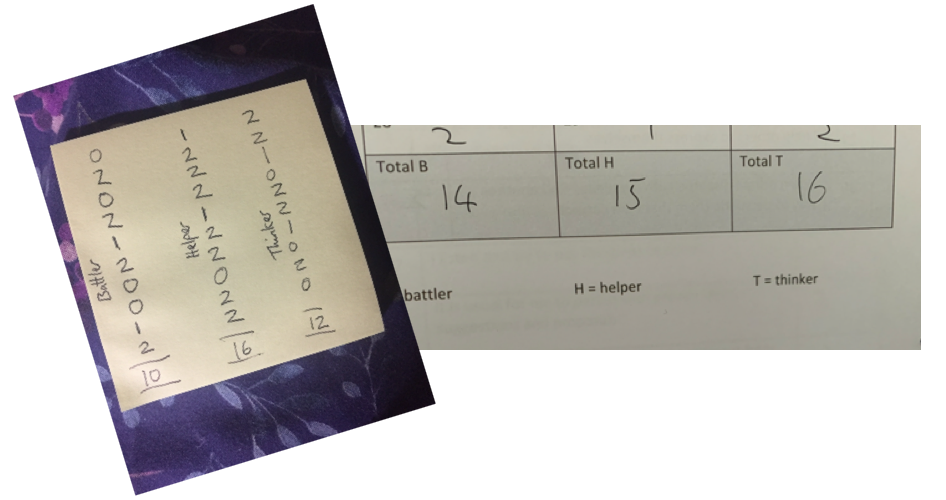 Battler
2 1 0 0 2 1 2 0 2 0
10
Helper
2 2 0 2 2 1 2 2 2 1
16
Thinker
0 2 0 1 2 2 0 1 2 2
12
2 1 2
Total B Total H Total T
14 15 16
battler H = helper T = thinker